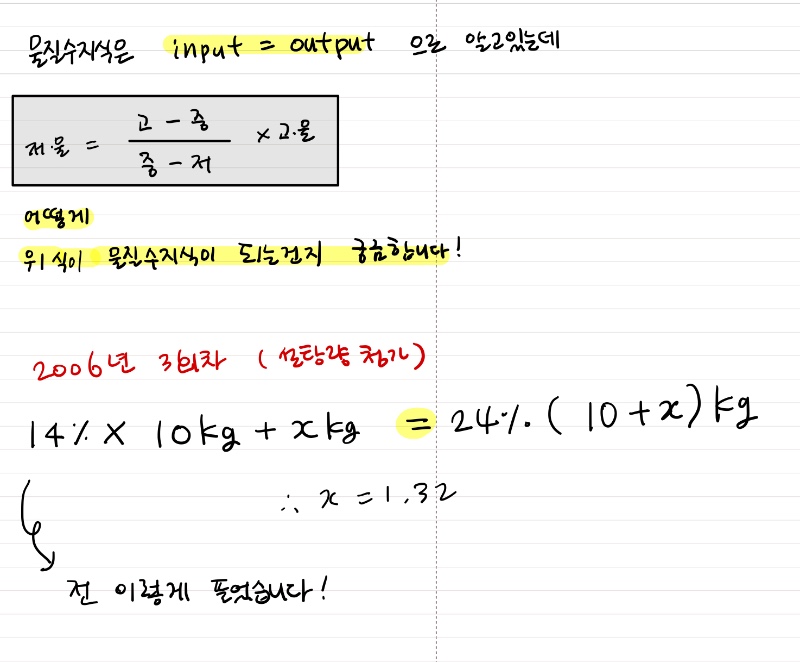 물질수지식은 input = output 으로 알고있는데
저.물 = 고 - 중 / 중 - 저 × 고.물
어떻게
위 식이 물질수지식이 되는건지 궁금합니다!
2006년 3회차 (설탕량 첨가)
14% × 10kg + xkg = 24%.(10+x)kg
∴ x = 1.32
전 이렇게 풀었습니다!